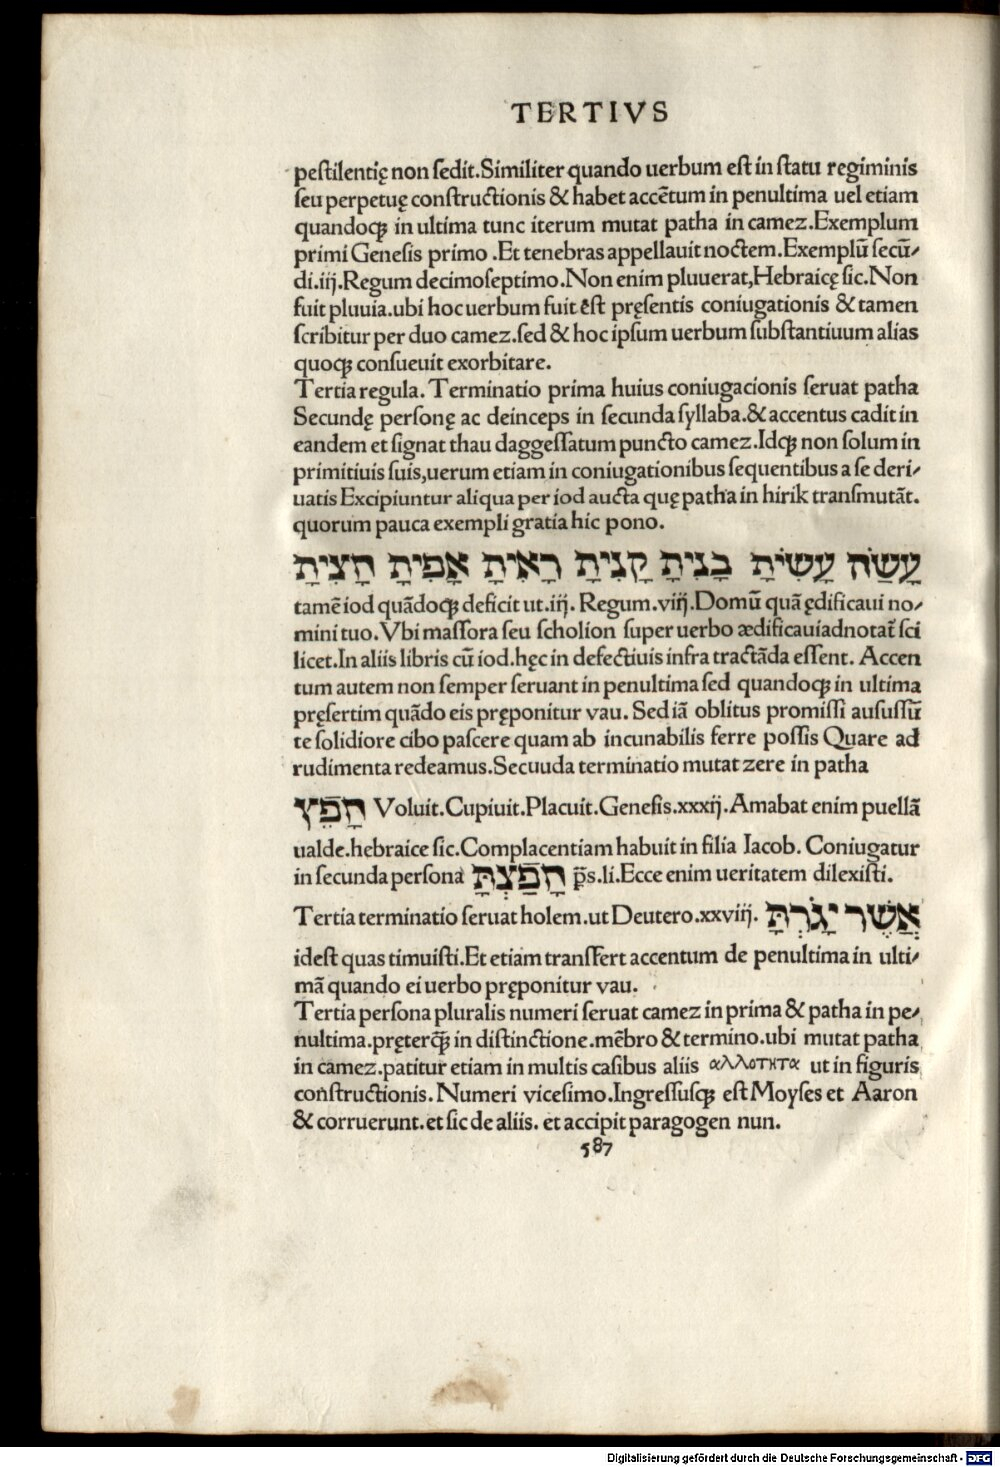 TERTIVS
peſtilentię non ſedit.Similiter quando uerbum eſt in ſtatu regiminis
ſeu perpetuę conſtructionis & habet accētum in penultima uel etiam
quandoqꝫ in ultima tunc iterum mutat patha in camez.Exemplum
primi Geneſis primo .Et tenebras appellauit noctem.Exemplū ſecū⸗
di.iij.Regum decimoſeptimo.Non enim pluuerat,Hebraicę ſic.Non
fuit pluuia.ubi hoc uerbum fuit ēſt pręſentis coniugationis & tamen
ſcribitur per duo camez.ſed & hoc ipſum uerbum ſubſtantiuum alias
quoqꝫ conſueuit exorbitare.
Tertia regula. Terminatio prima huius coniugacionis ſeruat patha
Secundę perſonę ac deinceps in ſecunda ſyllaba.& accentus cadit in
eandem et ſignat thau daggeſſatum puncto camez.Idqꝫ non ſolum in
primitiuis ſuis,uerum etiam in coniugationibus ſequentibus a ſe deri⸗
uatis Excipiuntur aliqua per iod aucta quę patha in hirik tranſmutāt.
quorum pauca exempli gratia hic pono.
עָשַׂה עָשִׂיתָ בָנִיתָ קָנִיתָ רָאִיתָ אָפִיתָ חָצִיתָ
tamē iod quādoqꝫ deficit ut.iij. Regum.viij.Domū quā ędificaui no⸗
mini tuo.Vbi maſſora ſeu ſcholion ſuper uerbo ædificauiadnotat̄ ſci
licet.In aliis libris cū iod.hęc in defectiuis infra tractāda eſſent. Accen
tum autem non ſemper ſeruant in penultima ſed quandoqꝫ in ultima
pręſertim quādo eis pręponitur vau. Sed iā oblitus promiſſi auſuſſū
te ſolidiore cibo paſcere quam ab incunabilis ferre poſſis Quare ad
rudimenta redeamus.Secuuda terminatio mutat zere in patha
חָפֵץ Voluit.Cupiuit.Placuit.Geneſis.xxxij.Amabat enim puellā
ualde.hebraice ſic.Complacentiam habuit in filia Iacob. Coniugatur
in ſecunda perſona חָפַצְתָּ p̄s.li.Ecce enim ueritatem dilexiſti.
Tertia terminatio ſeruat holem.ut Deutero.xxviij. אֲשֶׁר יָגֹרְתָּ
ideſt quas timuiſti.Et etiam transfert accentum de penultima in ulti⸗
mā quando ei uerbo pręponitur vau.
Tertia perſona pluralis numeri ſeruat camez in prima & patha in pe⸗
nultima.pręterqꝫ̄ in diſtinctione.mēbro & termino.ubi mutat patha
in camez.patitur etiam in multis caſibus aliis αλλοτητα ut in figuris
conſtructionis. Numeri viceſimo.Ingreſſuſqꝫ eſt Moyſes et Aaron
& corruerunt.et ſic de aliis. et accipit paragogen nun.
587
Digitalisierung gefördert durch die Deutsche Forschungsgemeinschaft - DFG